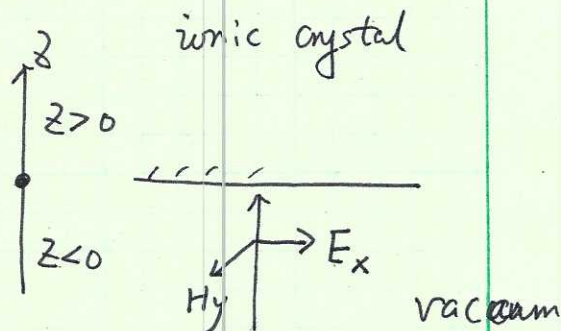 ionic crystal
z
z>0
z<0
Ex
Hy
vacuum